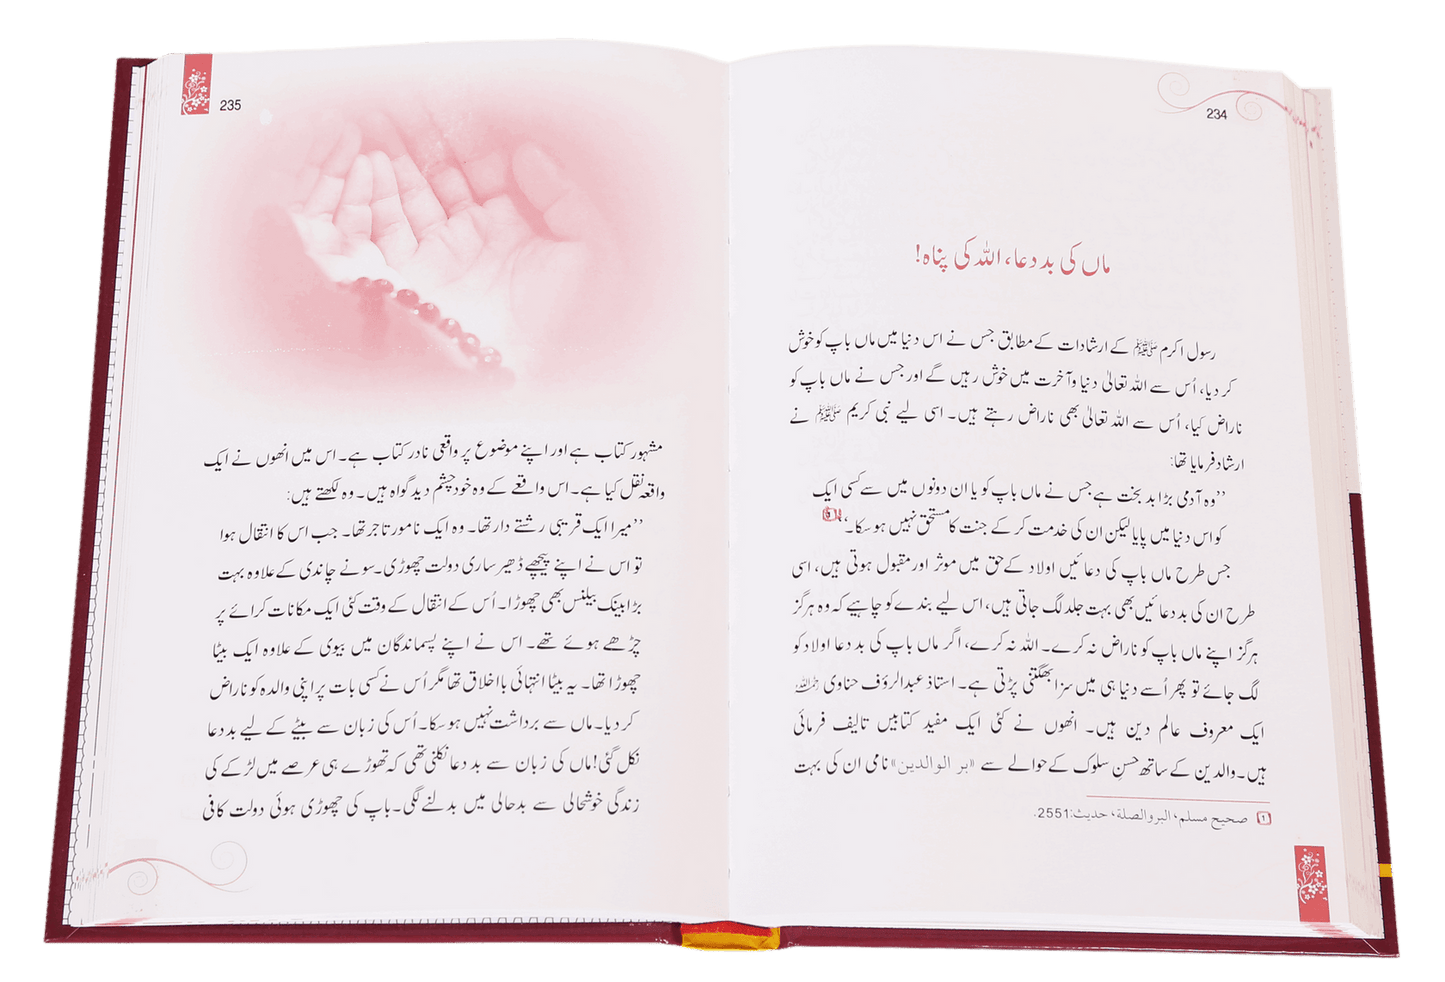 234
ماں کی بددعا، اللہ کی پناہ!
رسول اکرم ﷺ کے ارشادات کے مطابق جس نے اس دنیا میں ماں باپ کو خوش
کر دیا، اُس سے اللہ تعالیٰ دنیا و آخرت میں خوش رہیں گے اور جس نے ماں باپ کو
ناراض کیا، اُس سے اللہ تعالیٰ بھی ناراض رہتے ہیں۔ اسی لیے نبی کریم ﷺ نے
ارشاد فرمایا تھا:
’’وہ آدمی بڑا بد بخت ہے جس نے ماں باپ کو یا ان دونوں میں سے کسی ایک
کو اس دنیا میں پایا لیکن ان کی خدمت کر کے جنت کا مستحق نہیں ہو سکا۔‘‘
جس طرح ماں باپ کی دعائیں اولاد کے حق میں موثر اور مقبول ہوتی ہیں، اسی
طرح ان کی بددعائیں بھی بہت جلد لگ جاتی ہیں، اس لیے بندے کو چاہیے کہ وہ ہرگز
ہرگز اپنے ماں باپ کو ناراض نہ کرے۔ اللہ نہ کرے، اگر ماں باپ کی بد دعا اولاد کو
لگ جائے تو پھر اُسے دنیا ہی میں سزا بھگتنی پڑتی ہے۔ استاذ عبدالرؤف حناوی رحمہ اللہ
ایک معروف عالم دین ہیں۔ انھوں نے کئی ایک مفید کتابیں تالیف فرمائی
ہیں۔ والدین کے ساتھ حسنِ سلوک کے حوالے سے «بر الوالدین» نامی ان کی بہت
1 صحیح مسلم، البر والصلة، حدیث: 2551.
235
مشہور کتاب ہے اور اپنے موضوع پر واقعی نادر کتاب ہے۔ اس میں انھوں نے ایک
واقعہ نقل کیا ہے۔ اس واقعے کے وہ خود چشم دید گواہ ہیں۔ وہ لکھتے ہیں:
’’میرا ایک قریبی رشتے دار تھا۔ وہ ایک نامور تاجر تھا۔ جب اس کا انتقال ہوا
تو اس نے اپنے پیچھے ڈھیر ساری دولت چھوڑی۔ سونے چاندی کے علاوہ بہت
بڑا بینک بیلنس بھی چھوڑا۔ اُس کے انتقال کے وقت کئی ایک مکانات کرائے پر
چڑھے ہوئے تھے۔ اس نے اپنے پسماندگان میں بیوی کے علاوہ ایک بیٹا
چھوڑا تھا۔ یہ بیٹا انتہائی بااخلاق تھا مگر اُس نے کسی بات پر اپنی والدہ کو ناراض
کر دیا۔ ماں سے برداشت نہیں ہو سکا۔ اُس کی زبان سے بیٹے کے لیے بددعا
نکل گئی! ماں کی زبان سے بد دعا نکلنی تھی کہ تھوڑے ہی عرصے میں لڑکے کی
زندگی خوشحالی سے بدحالی میں بدلنے لگی۔ باپ کی چھوڑی ہوئی دولت کافی